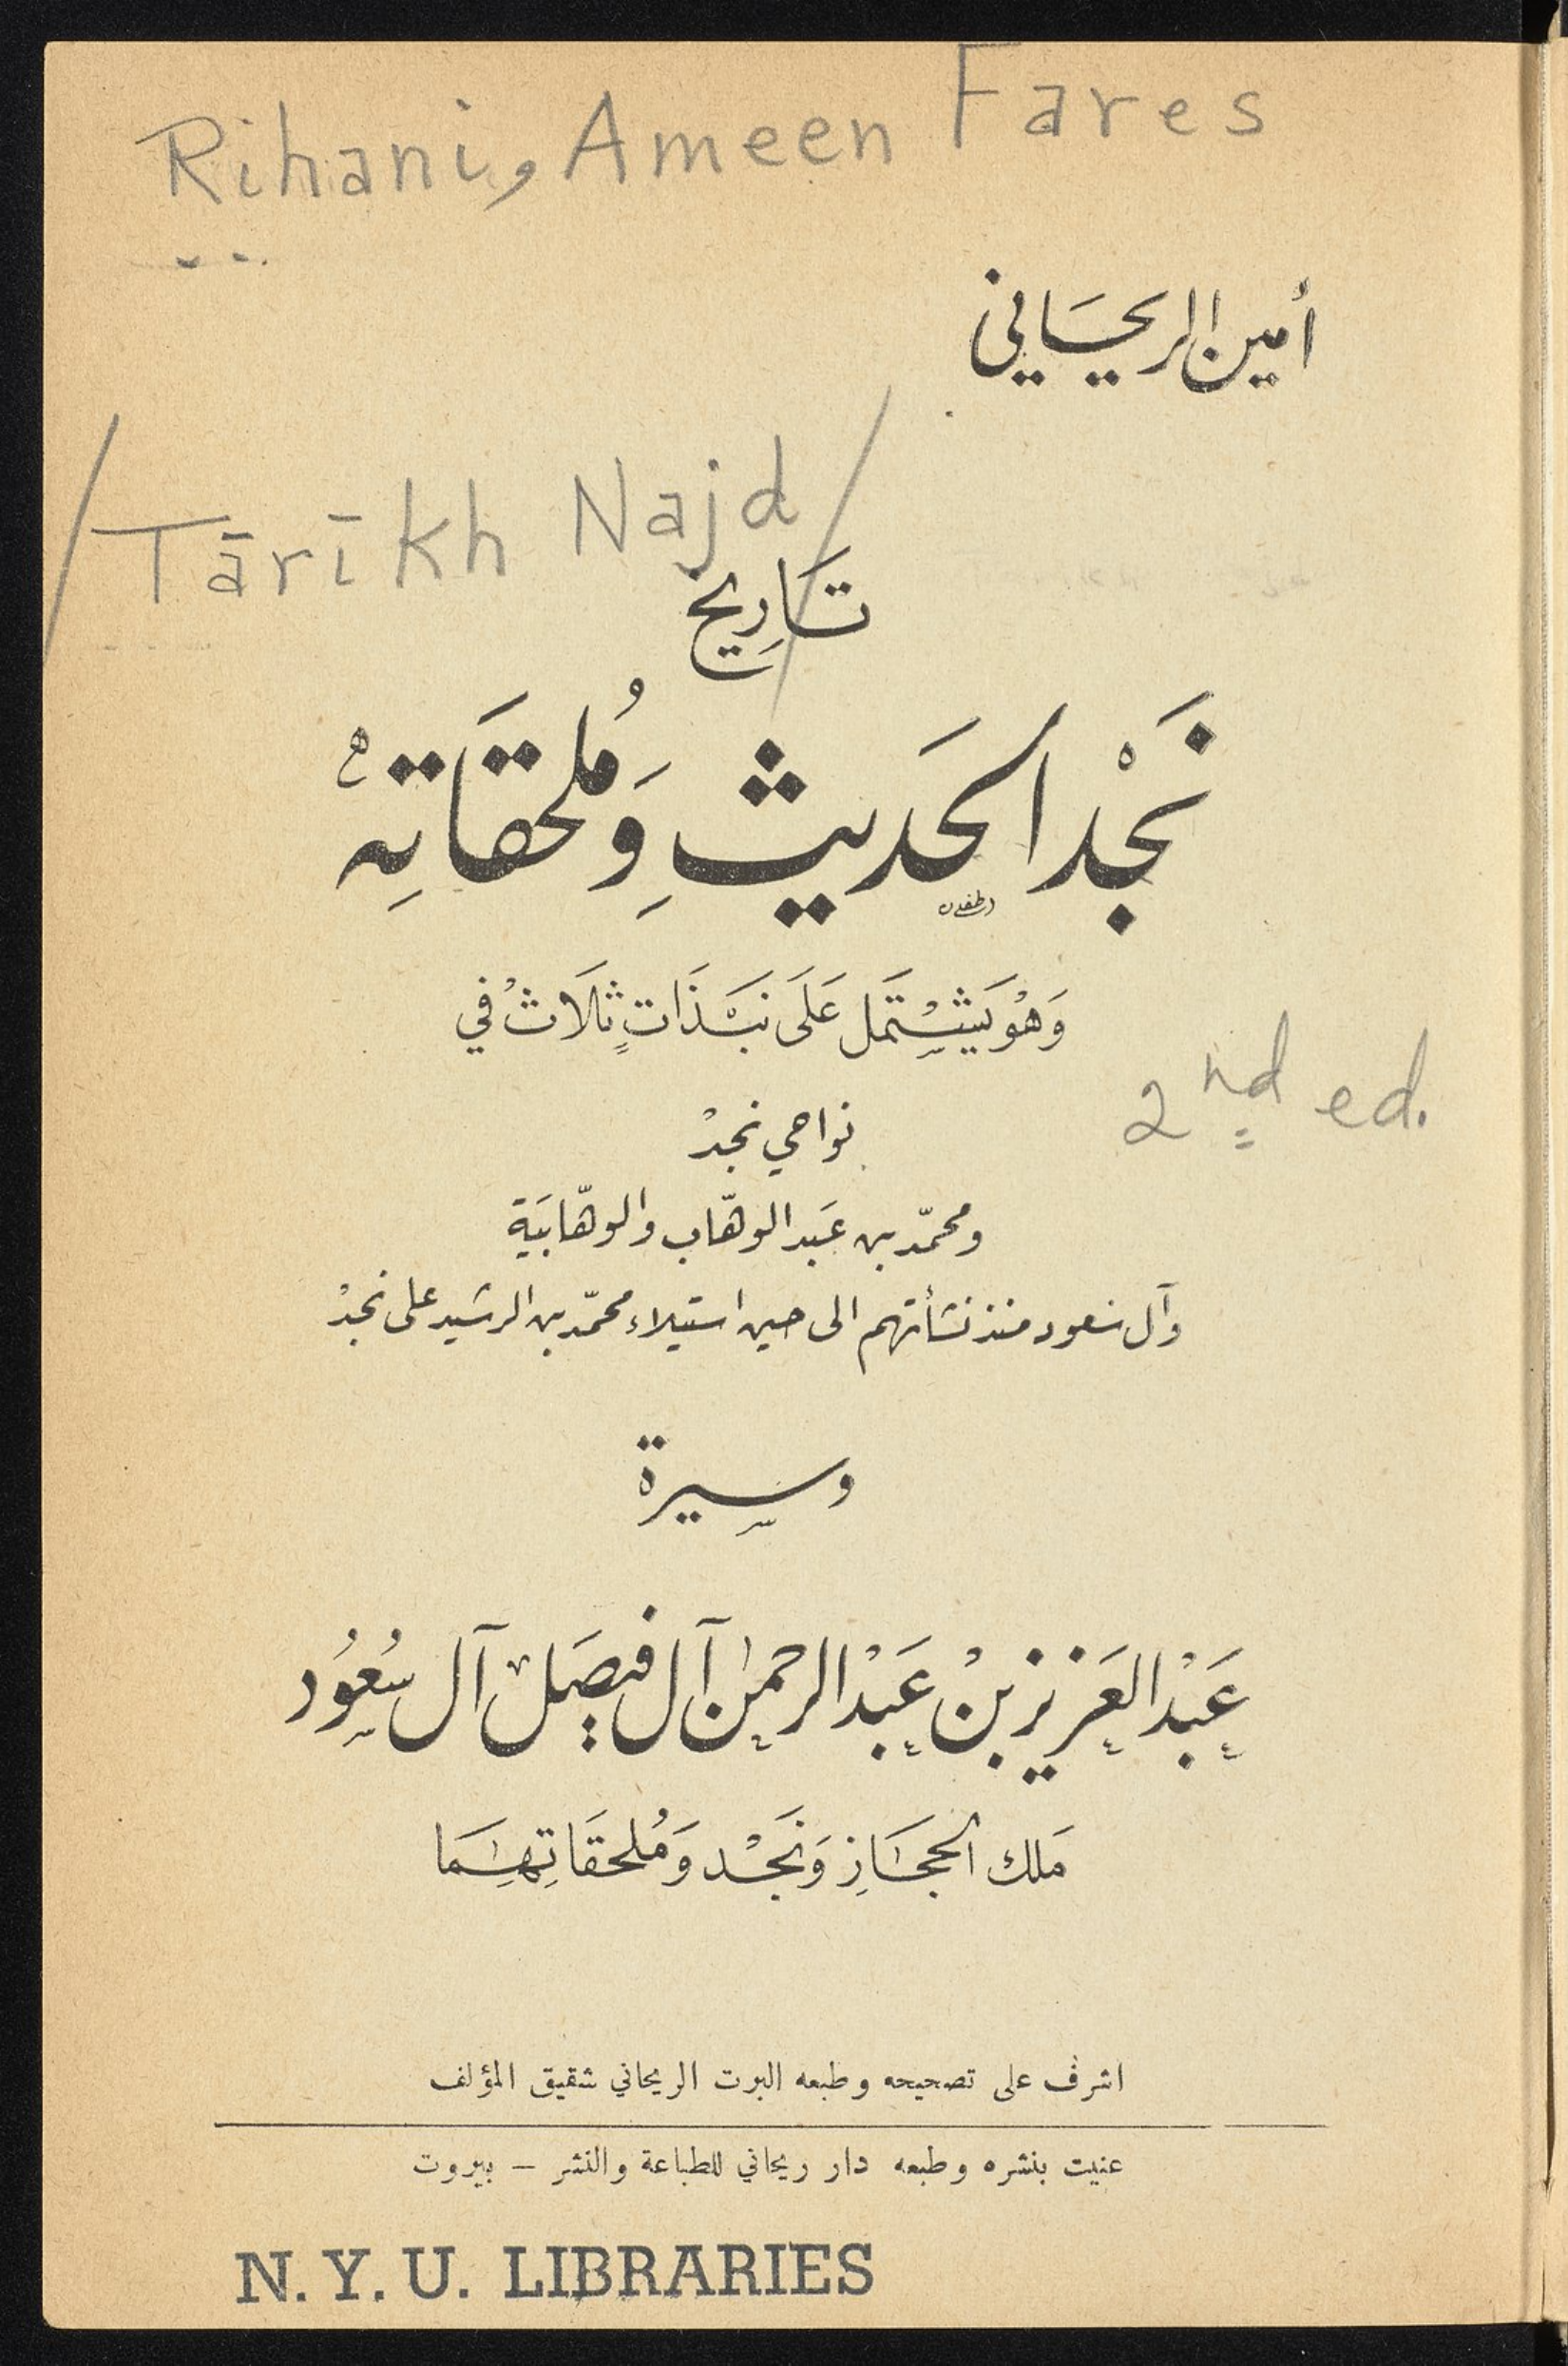 Rihani, Ameen Fares
أمين الريحاني
/Tārīkh Najd/
تاريخ
نَجْد الحَديثِ وَمُلحقَاتِهْ
وَهُوَ يَشْتَمل عَلَى نبْذَاتٍ ثَلَاثْ في
نواحي نجدْ
2nd ed.
ومحمّد بن عَبد الوهّاب والوهّابيَة
وآل سعود منذ نشأتهم الى حين استيلاء محمّد بن الرشيد على نجدْ
وسيرة
عَبْد العَزيز بنْ عَبْد الرحمٰن آل فيصَل آل سُعُود
مَلك الحجَاز وَنَجْد وَمُلحقَاتِهِمَا
اشرف على تصحيحه وطبعه البرت الريحاني شقيق المؤلف
عنيت بنشره وطبعه دار ريحاني للطباعة والنشر – بيروت
N.Y.U. LIBRARIES